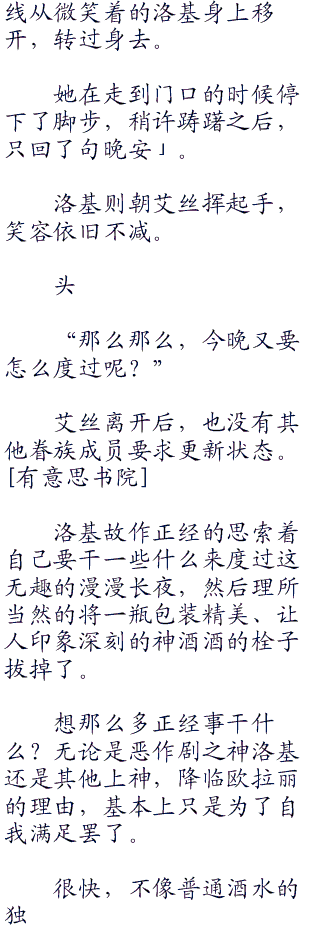 线从微笑着的洛基身上移
开，转过身去。
她在走到门口的时候停
下了脚步，稍许踌躇之后，
只回了句晚安」。
洛基则朝艾丝挥起手，
笑容依旧不减。
头
“那么那么，今晚又要
怎么度过呢？”
艾丝离开后，也没有其
他眷族成员要求更新状态。
[有意思书院]
洛基故作正经的思索着
自己要干一些什么来度过这
无趣的漫漫长夜，然后理所
当然的将一瓶包装精美、让
人印象深刻的神酒酒的栓子
拔掉了。
想那么多正经事干什
么？无论是恶作剧之神洛基
还是其他上神，降临欧拉丽
的理由，基本上只是为了自
我满足罢了。
很快，不像普通酒水的
独